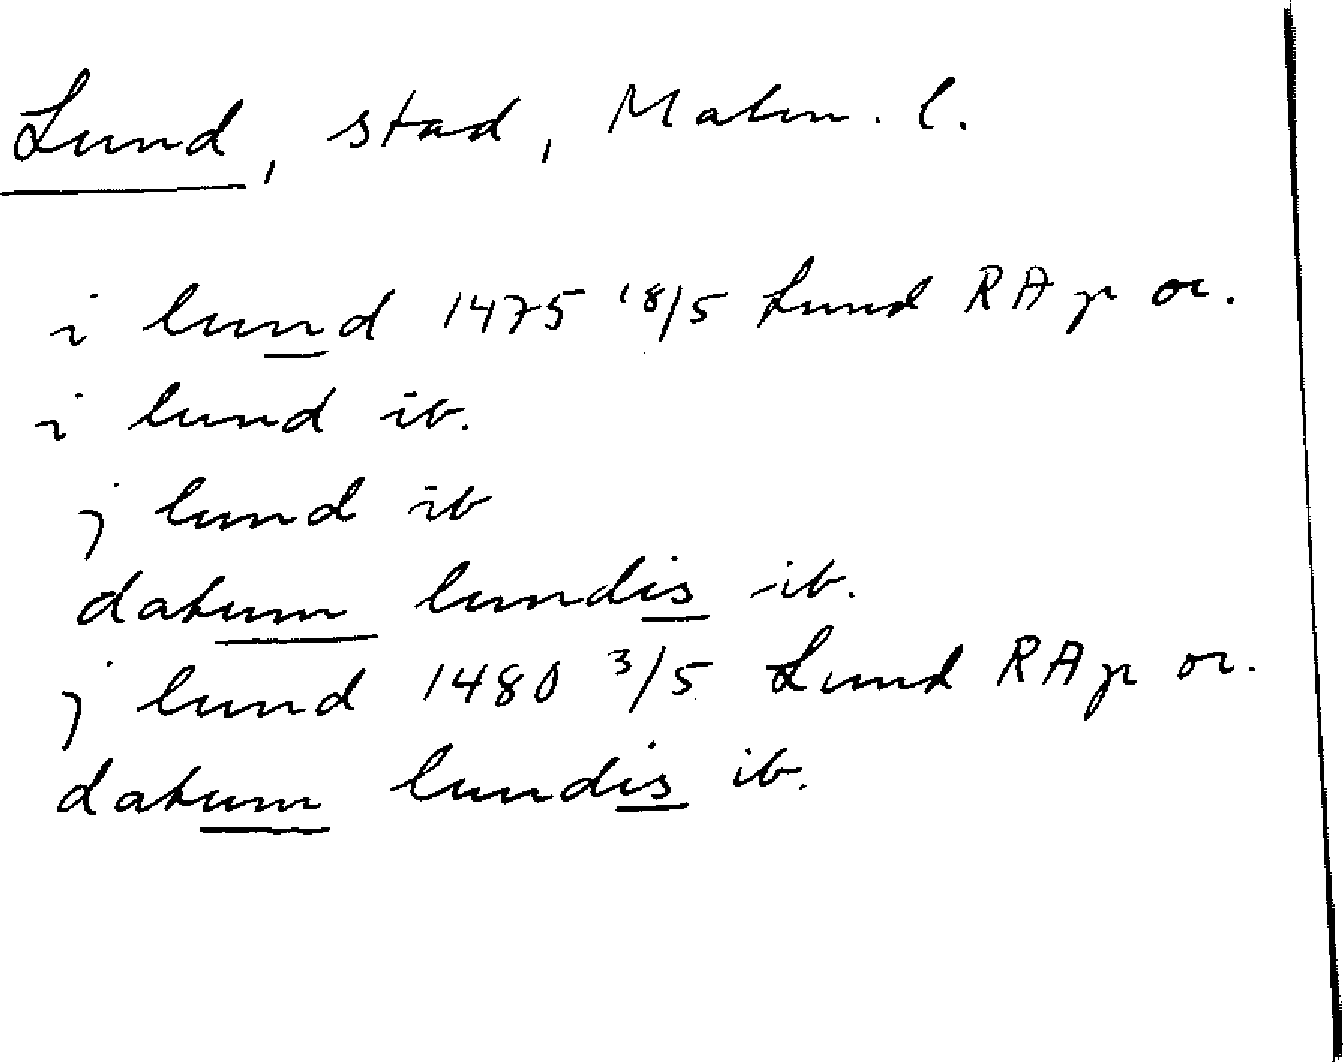 Lund, stad, Malm. l.
i lund 1475 18/5 Lund RAp or.
i lund ib.
j lund ib
datum lundis ib.
j lund 1480 3/5 Lund RAp or.
datum lundis ib.